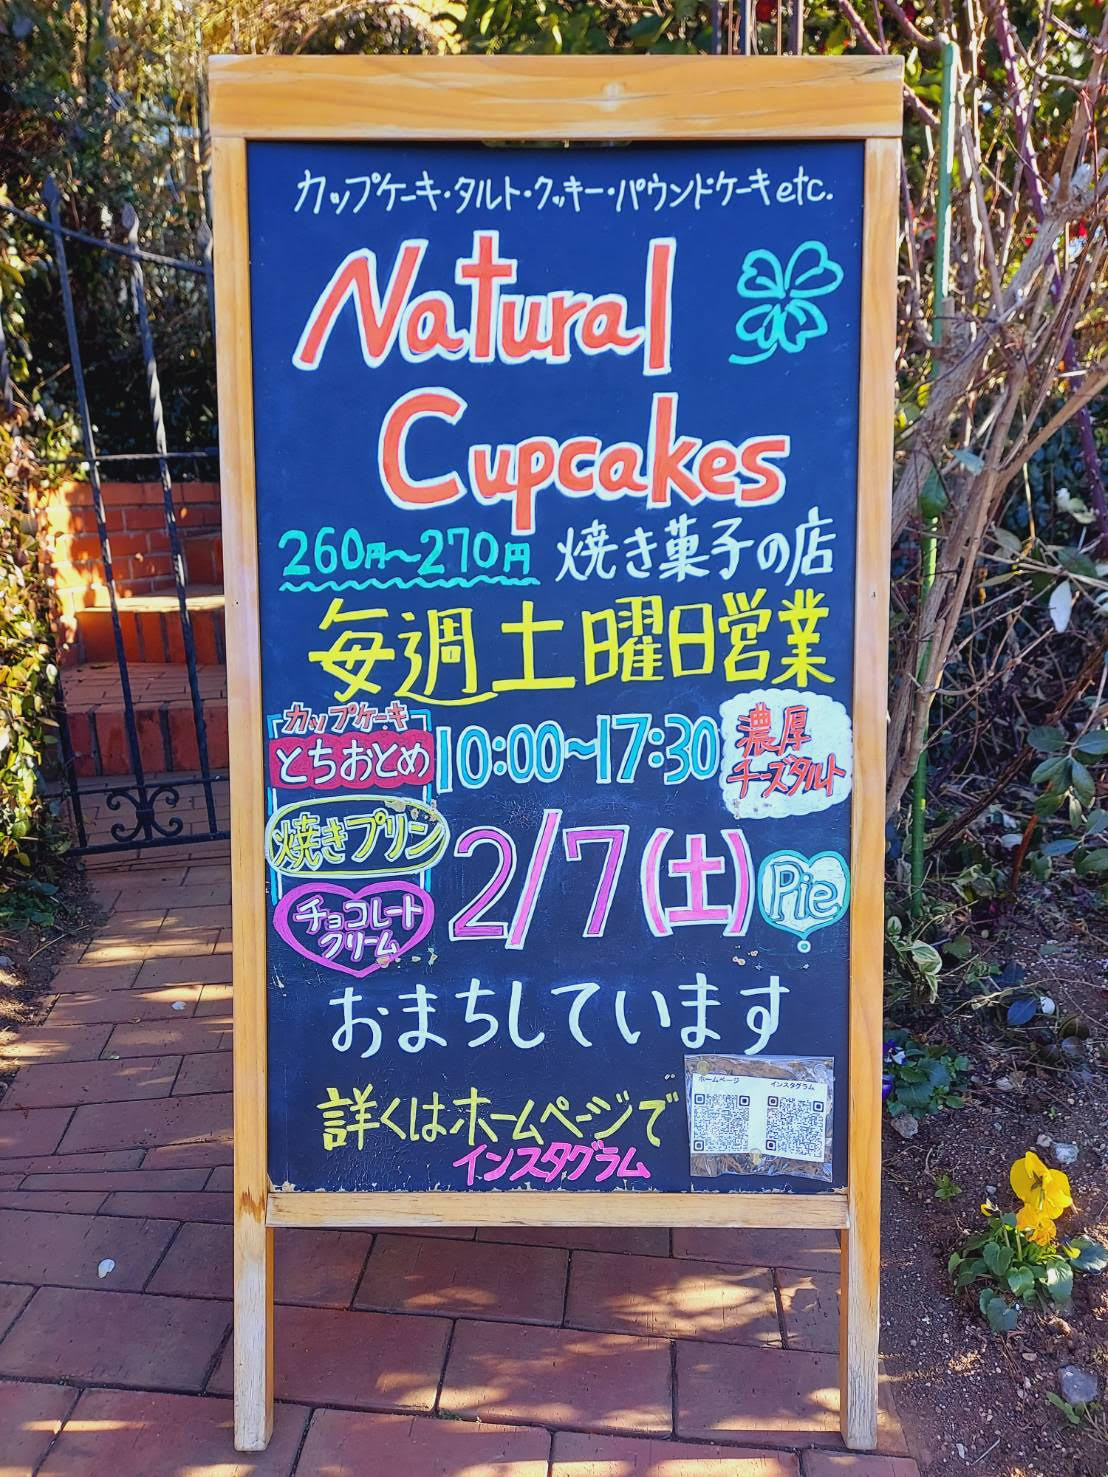 カップケーキ・タルト・クッキー・パウンドケーキetc.
Natural
Cupcakes
260円〜270円 焼き菓子の店
毎週土曜日営業
カップケーキ
とちおとめ
焼きプリン
チョコレート
クリーム
10:00〜17:30
濃厚
チーズタルト
2/7(土)
Pie
おまちしています
詳くはホームページで
インスタグラム
ホームページ インスタグラム